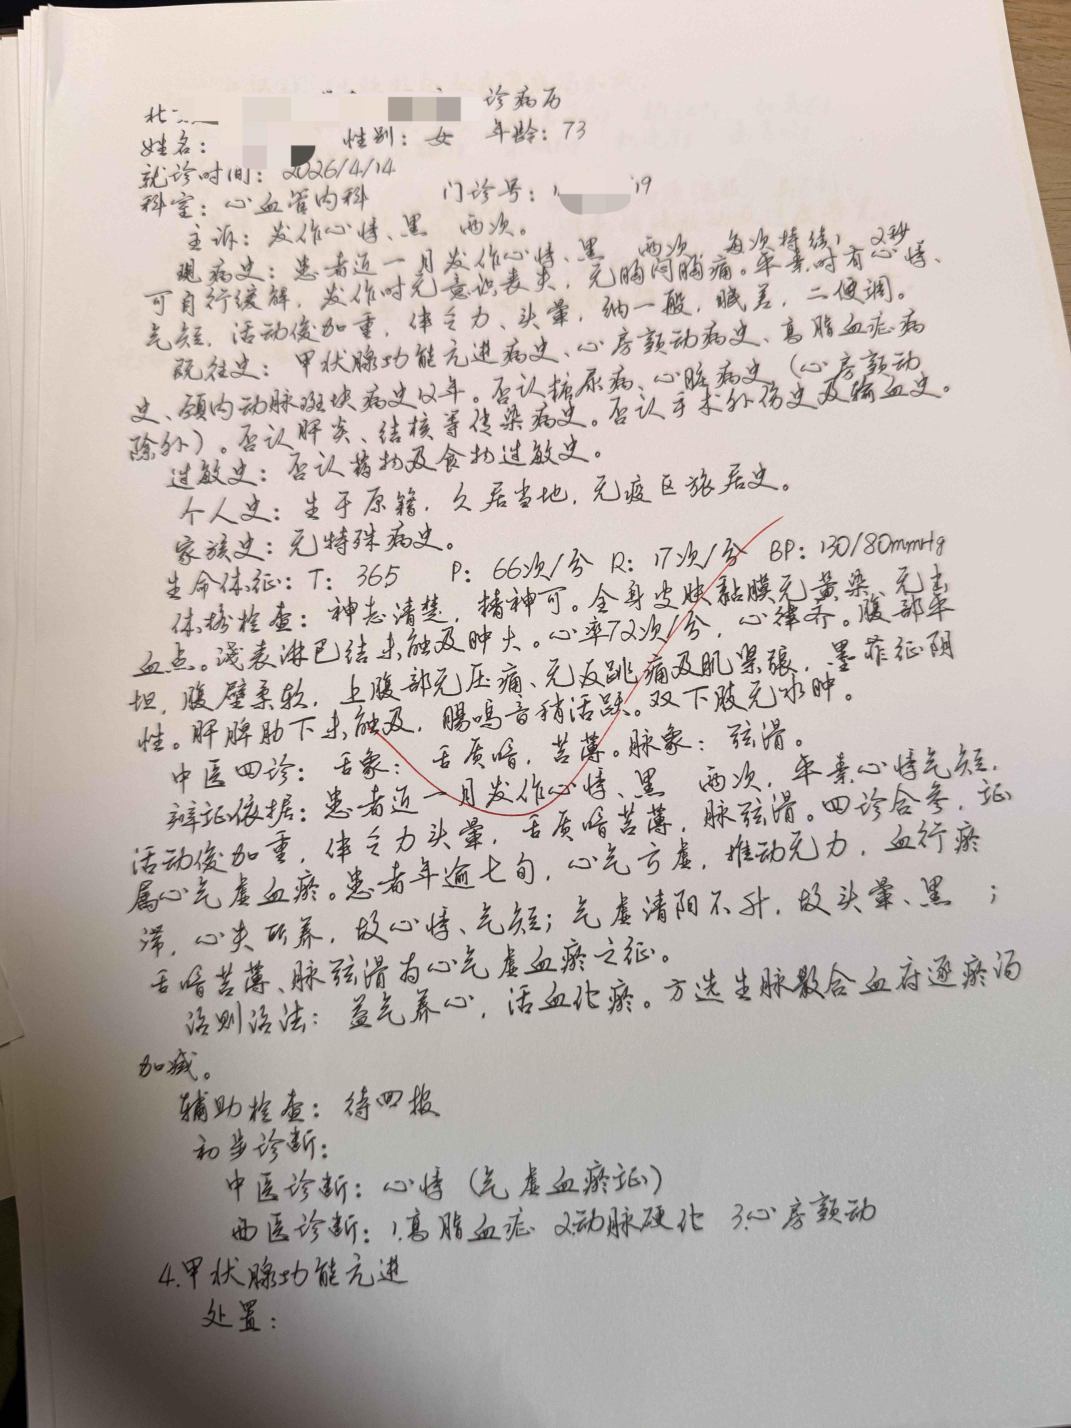 诊病历
姓名： 性别：女 年龄：73
就诊时间：2026/4/14
科室：心血管内科 门诊号： 19
主诉：发作心悸、黑 两次。
现病史：患者近一月发作心悸、黑 两次，每次持续1、2秒
可自行缓解，发作时无意识丧失，无胸闷胸痛。平素时有心悸、
气短，活动后加重，伴乏力、头晕，纳一般，眠差，二便调。
既往史：甲状腺功能亢进病史、心房颤动病史、高脂血症病
史、颈内动脉斑块病史12年。否认糖尿病、心脏病史（心房颤动
除外）。否认肝炎、结核等传染病史。否认手术外伤史及输血史。
过敏史：否认药物及食物过敏史。
个人史：生于原籍，久居当地，无疫区旅居史。
家族史：无特殊病史。
生命体征：T：365 P：66次/分 R：17次/分 BP：130/80mmHg
体格检查：神志清楚，精神可。全身皮肤黏膜无黄染、无出
血点。浅表淋巴结未触及肿大。心率72次/分，心律齐。腹部平
坦，腹壁柔软，上腹部无压痛、无反跳痛及肌紧张，墨菲征阴
性。肝脾肋下未触及，肠鸣音稍活跃。双下肢无水肿。
中医四诊：舌象：舌质暗，苔薄。脉象：弦滑。
辨证依据：患者近一月发作心悸、黑 两次，平素心悸气短，
活动后加重，伴乏力头晕，舌质暗苔薄，脉弦滑。四诊合参，证
属心气虚血瘀。患者年逾七旬，心气亏虚，推动无力，血行瘀
滞，心失所养，故心悸、气短；气虚清阳不升，故头晕、黑 ；
舌暗苔薄、脉弦滑为心气虚血瘀之征。
治则治法：益气养心，活血化瘀。方选生脉散合血府逐瘀汤
加减。
辅助检查：待回报
初步诊断：
中医诊断：心悸（气虚血瘀证）
西医诊断：1.高脂血症 2.动脉硬化 3.心房颤动
4.甲状腺功能亢进
处置：